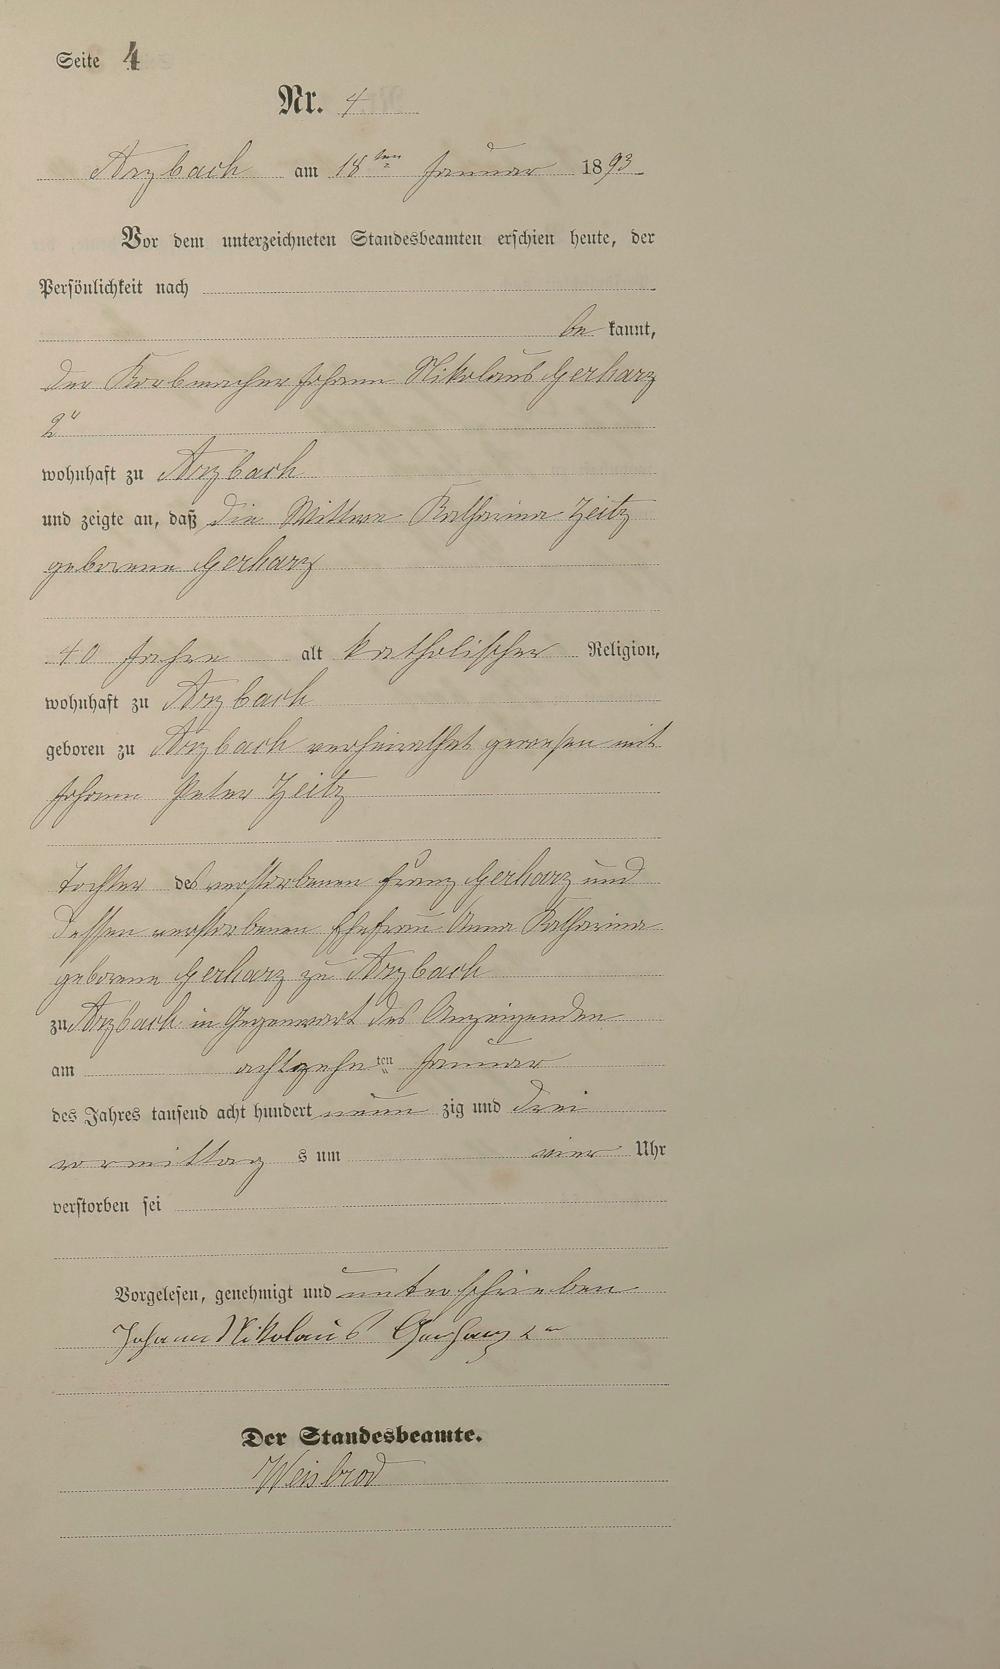 Seite 4
Nr. 4
Arzbach am 18ten Januar 1893
Vor dem unterzeichneten Standesbeamten erschien heute, der
Persönlichkeit nach
be kannt,
der Korbmacher Johann Nikolaus Gerharz
2r
wohnhaft zu Arzbach
und zeigte an, daß die Wittwe Katharina Zeitz
geborene Gerharz
40 Jahre alt katholischer Religion,
wohnhaft zu Arzbach
geboren zu Arzbach verheirathet gewesen mit
Johann Peter Zeitz
Tochter des verstorbenen Franz Gerharz und
dessen verstorbenen Ehefrau Anna Katharina
geborene Gerharz zu Arzbach
zu Arzbach in Gegenwart des Anzeigenden
am achtzehnten Januar
des Jahres tausend acht hundert neun zig und drei
vormittag s um vier Uhr
verstorben sei
Vorgelesen, genehmigt und unterschrieben
Johann Nikolaus Gerharz 2r
Der Standesbeamte.
Weisbrod